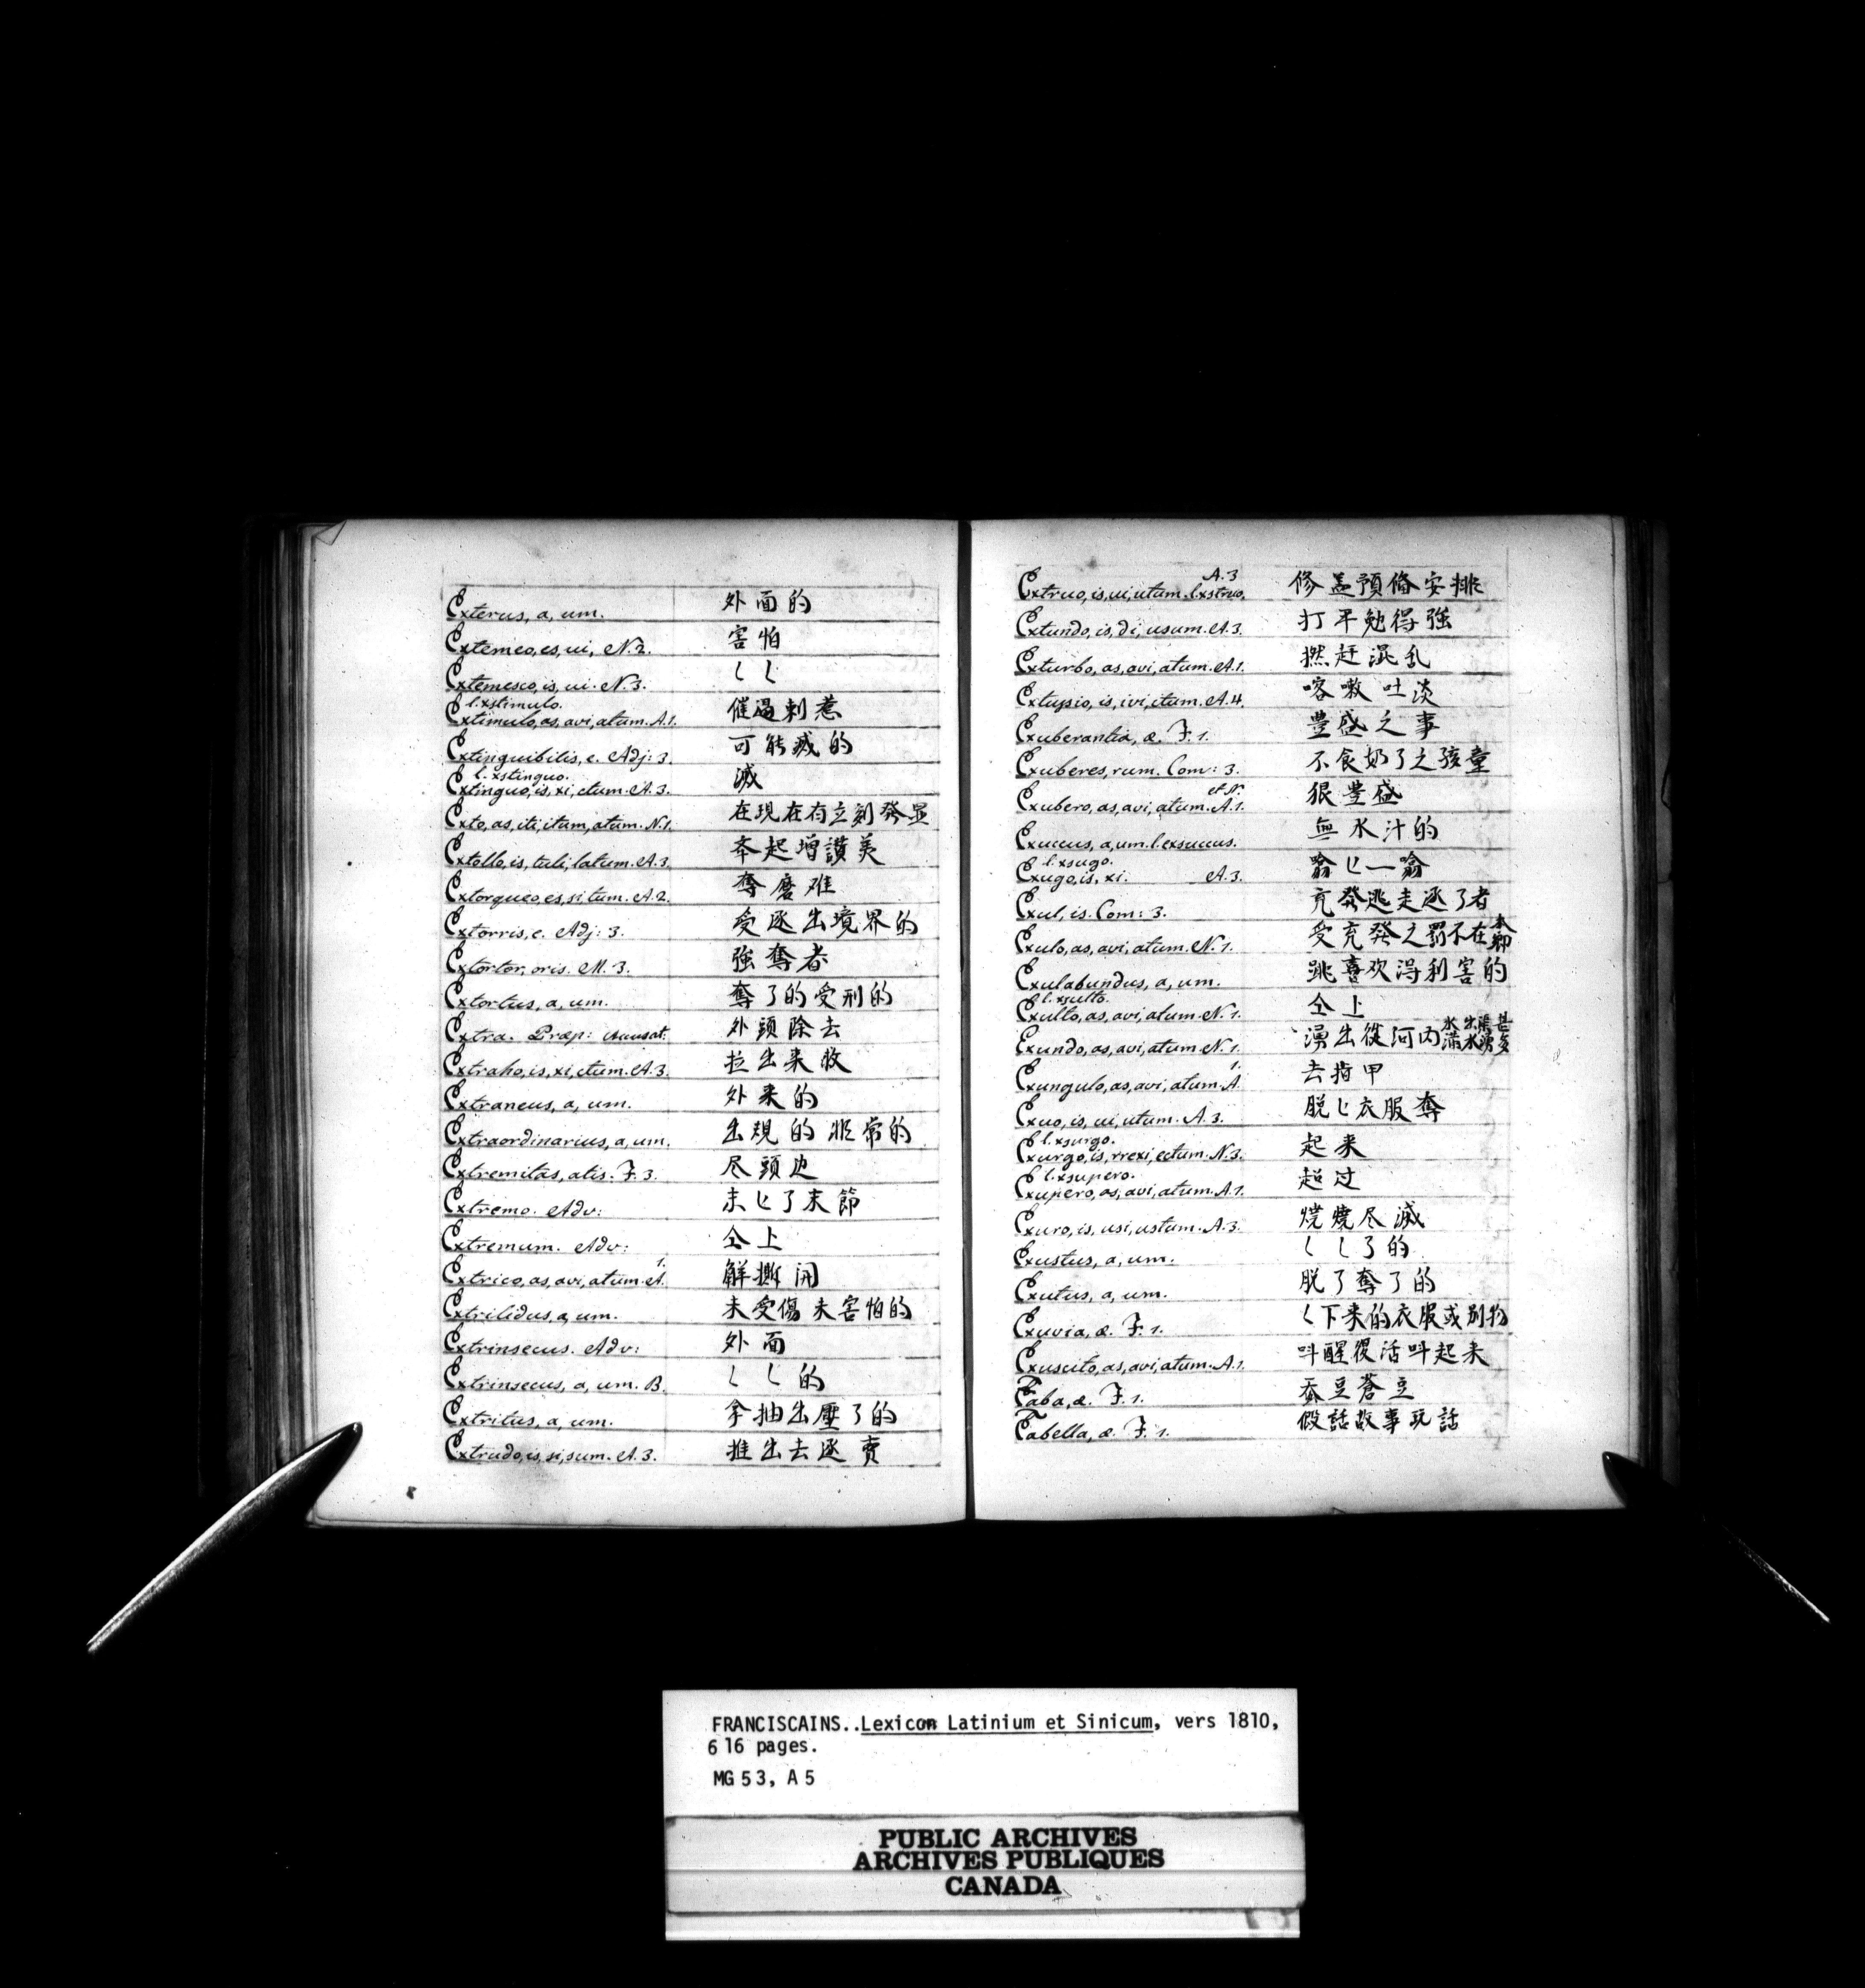 Exterus, a, um. 外面的
Extemeo, es, ui, N. 2. 害怕
Extemesco, is, ui. N. 3.
l. xstimulo.
Extimulo, as, avi, atum. A. 1. 催逼刺惹
Extinguibilis, e. Adj: 3. 可能滅的
l. xstinguo.
Extinguo, is, xi, ctum. A. 3. 滅
Exto, as, iti, itum, atum. N. 1. 在現在有立刻發显
Extollo, is, tuli, latum. A. 3. 夲起增讚美
Extorqueo, es, si, tum. A. 2. 奪磨难
Extorris, e. Adj: 3. 受逐出境界的
Extortor, oris. M. 3. 強奪者
Extortus, a, um. 奪了的受刑的
Extra. Præp: Accusat. 外頭除去
Extraho, is, xi, ctum. A. 3. 拉出来收
Extraneus, a, um. 外来的
Extraordinarius, a, um. 出規的非常的
Extremitas, atis. F. 3. 尽頭边
Extremo. Adv: 末匕了末節
Extremum. Adv: 仝上
Extrico, as, avi, atum. A. 1. 解撕開
Extrilidus, a, um. 未受傷未害怕的
Extrinsecus. Adv: 外面
Extrinsecus, a, um. B. 的
Extritus, a, um. 拿抽出壓了的
Extrudo, is, si, sum. A. 3. 推出去逐賣
A. 3
Extruo, is, ui, utum. l. xstruo. 修盖預俻安排
Extundo, is, di, usum. A. 3. 打平勉得強
Exturbo, as, avi, atum. A. 1. 撚赶混乱
Extussio, is, ivi, itum. A. 4. 喀嗽吐淡
Exuberantia, æ. F. 1. 豊盛之事
Exuberes, rum. Com: 3. 不食奶了之孩童
et N.
Exubero, as, avi, atum. A. 1. 狠豊盛
Exuccus, a, um. l. exsuccus. 無水汁的
l. xsugo.
Exugo, is, xi. A. 3. 匕一
Exul, is. Com: 3. 充發逃走逐了者
Exulo, as, avi, atum. N. 1. 受充發之罰不在本鄉
Exulabundus, a, um. 跳喜欢得利害的
l. xsulto.
Exulto, as, avi, atum. N. 1. 仝上
Exundo, as, avi, atum. N. 1. 湧出從河内
Exungulo, as, avi, atum. A. 1. 去指甲
Exuo, is, ui, utum. A. 3. 脱匕衣服奪
l. xsurgo.
Exurgo, is, rrexi, ectum. N. 3. 起来
l. xsupero.
Exupero, as, avi, atum. A. 1. 超过
Exuro, is, usi, ustum. A. 3. 焼燒尽滅
Exustus, a, um. 了的
Exutus, a, um. 脱了奪了的
Exuvia, æ. F. 1. 下来的衣服或别物
Exuscito, as, avi, atum. A. 1. 呌醒復活呌起来
Faba, æ. F. 1. 蚕豆蒼豆
Fabella, æ. F. 1. 假話故事玩話
FRANCISCAINS..Lexicon Latinium et Sinicum, vers 1810,
616 pages.
MG 53, A 5
PUBLIC ARCHIVES
ARCHIVES PUBLIQUES
CANADA